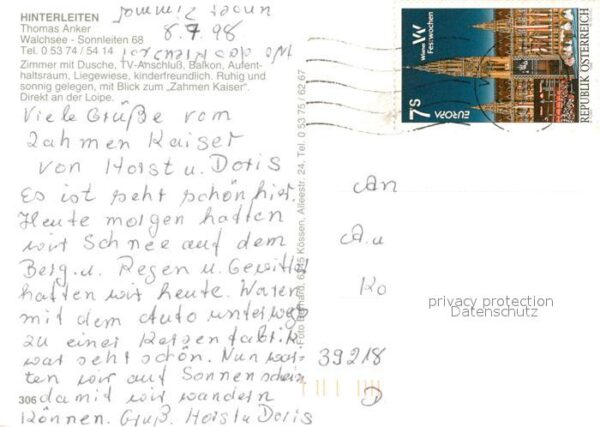 HINTERLEITEN
Thomas Anker
Walchsee - Sonnleiten 68
Tel. 0 53 74 / 54 14
Zimmer mit Dusche, TV-Anschluß, Balkon, Aufent-
haltsraum, Liegewiese, kinderfreundlich. Ruhig und
sonnig gelegen, mit Blick zum „Zahmen Kaiser".
Direkt an der Loipe.
8.7.98
Viele Grüße vom
Zahmen Kaiser
von Horst u. Doris
Es ist sehr schön hier.
Heute morgen hatten
wir Schnee auf dem
Berg u. Regen u. Gewitter
hatten wir heute. Waren
mit dem Auto unterwegs
zu einer Kerzenfabrik
war sehr schön. Nun war-
ten wir auf Sonnenschein
damit wir wandern
können. Gruß. Horst u Doris
306
Foto Bernhard, Kössen, Alleestr. 24, Tel. 0 53 75 / 62 67
7s
EUROPA
Wiener
Festwochen
REPUBLIK ÖSTERREICH
an
Ko
39218
D
privacy protection
Datenschutz